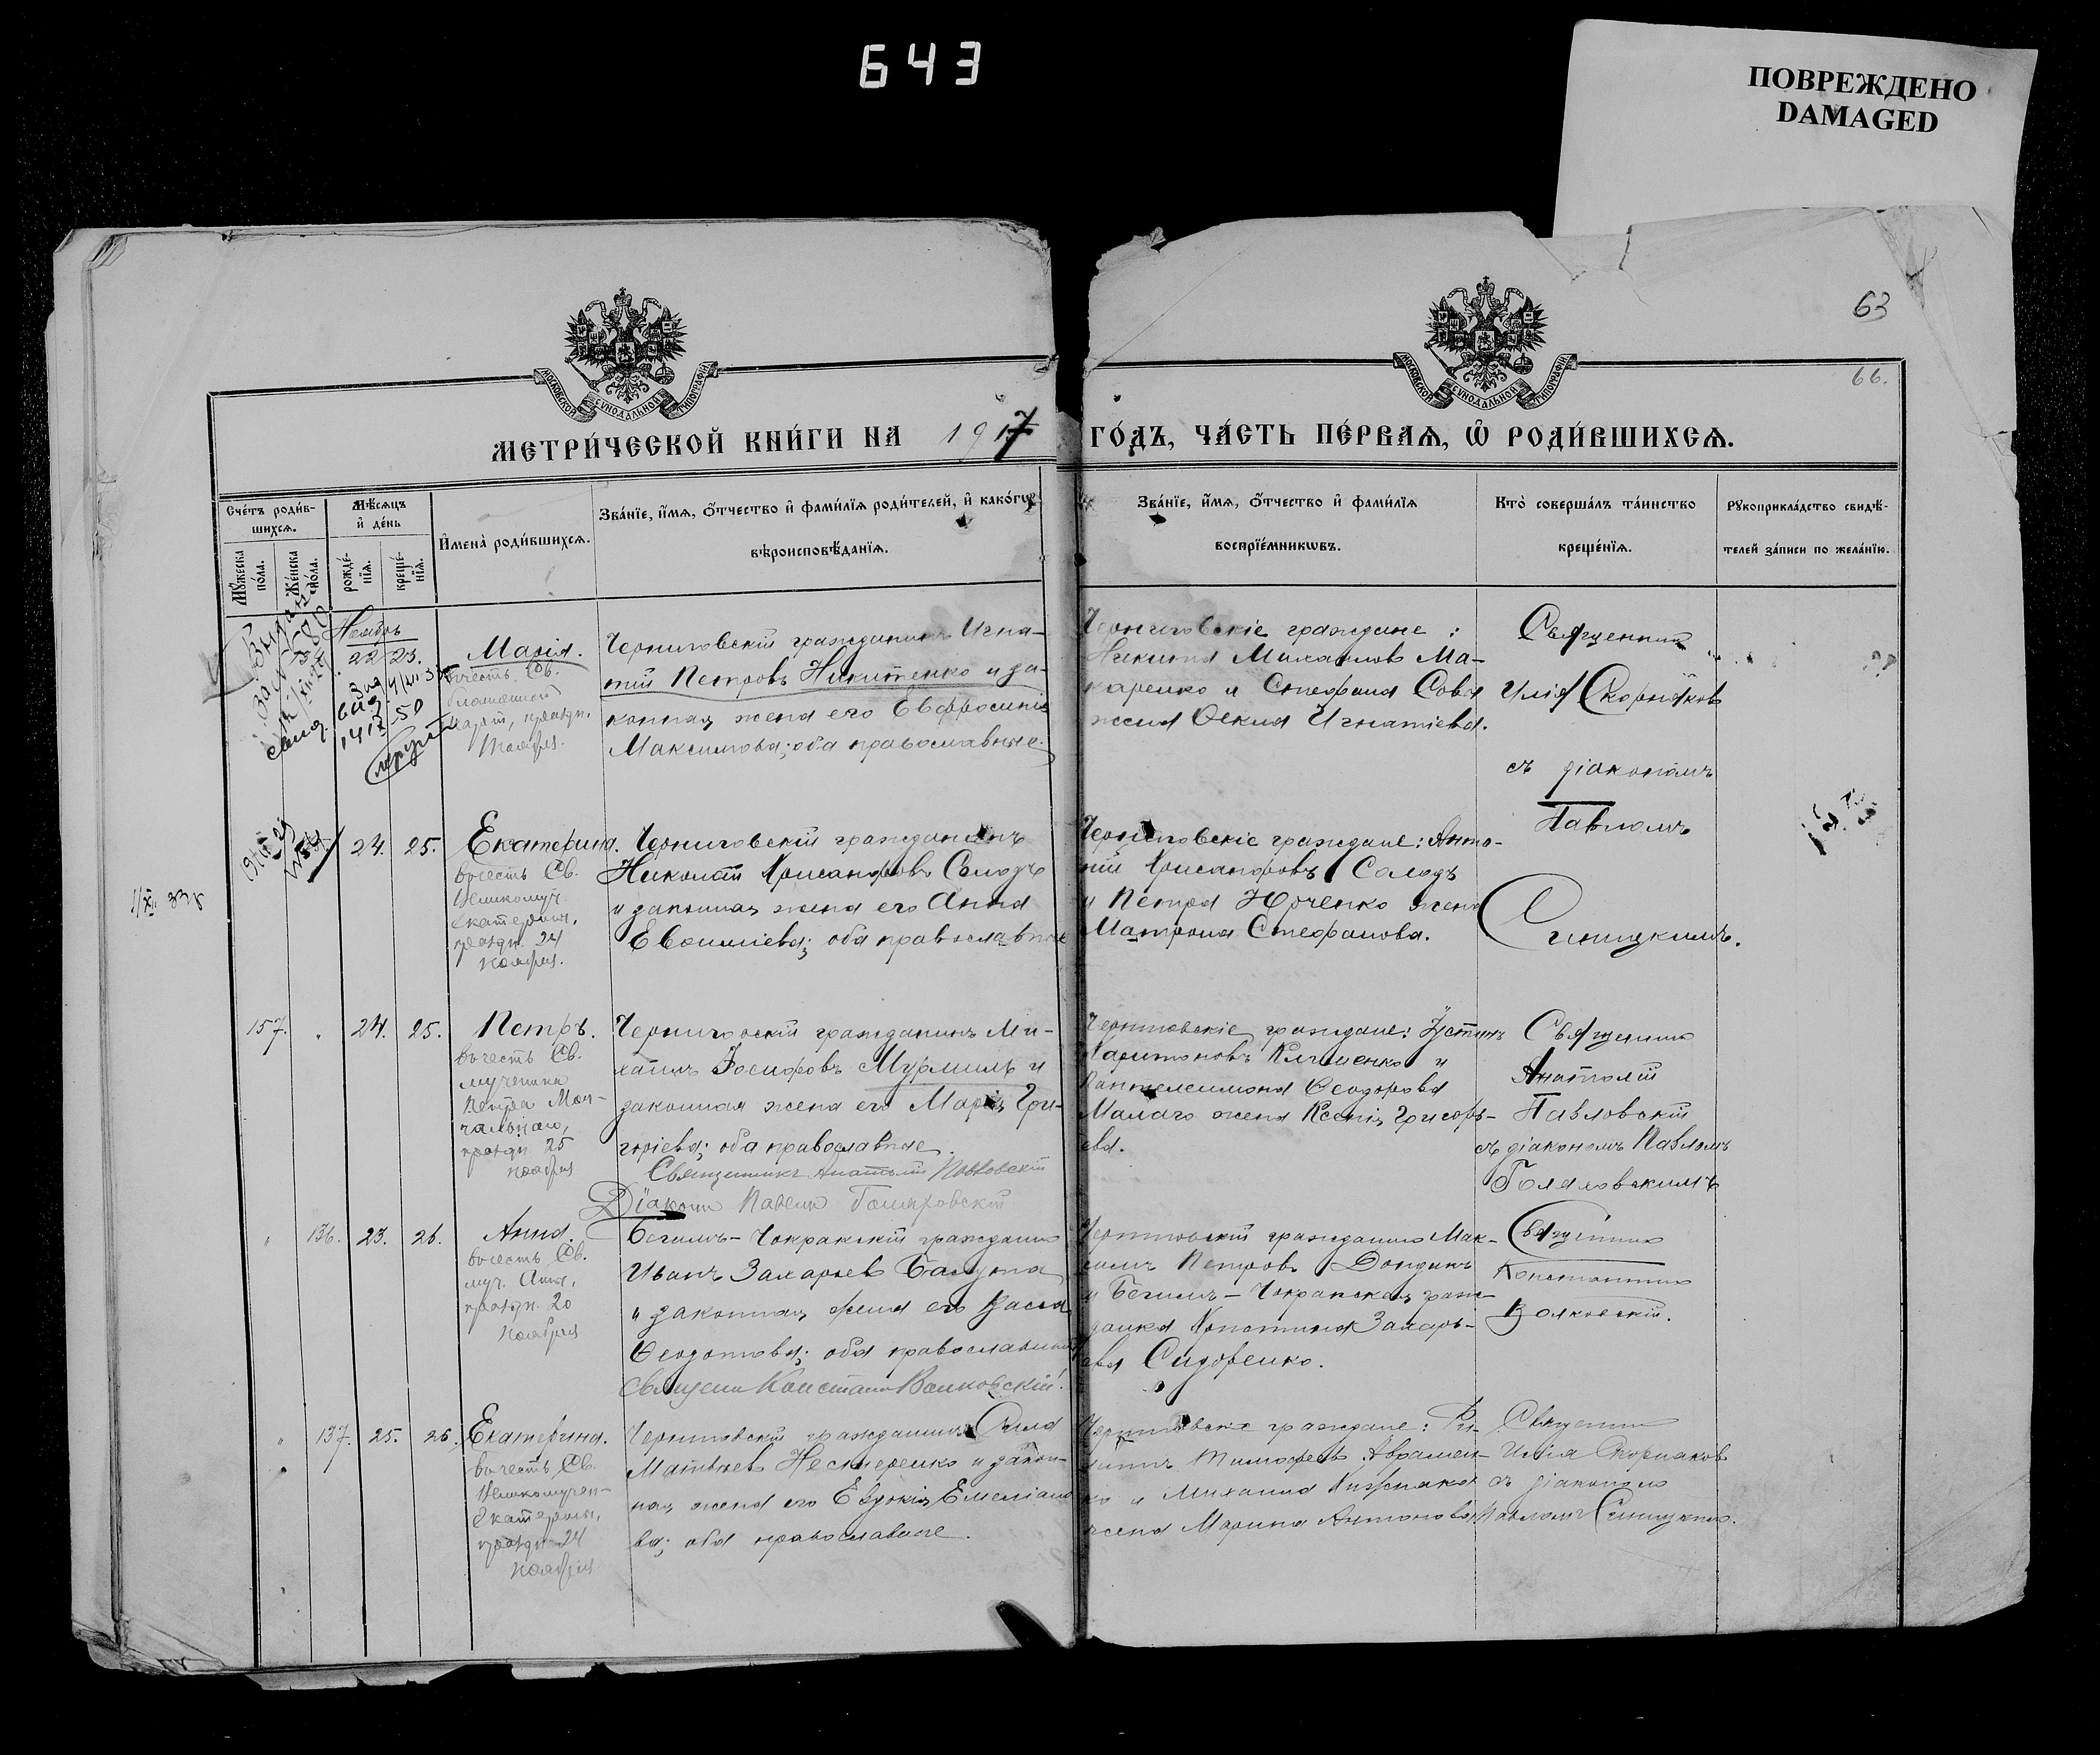 643
ПОВРЕЖДЕНО
DAMAGED
63
66.
МОСКОВСКОЙ СѴНОДАЛЬНОЙ ТИПОГРАФІИ
МОСКОВСКОЙ СѴНОДАЛЬНОЙ ТИПОГРАФІИ
МЕТРИ́ЧЕСКОЙ КНИ́ГИ НА 1917 ГО́ДЪ, ЧА́СТЬ ПЕ́РВАѦ, Ѡ҆ РОДИ́ВШИХСѦ.
Сче́тъ роди́в-
шихсѧ.
Мѣ́сѧцъ
и҆ де́нь
И҆мена̀ роди́вшихсѧ.
Зва́нїе, и҆́мѧ, ѻ҆́тчество и҆ фами́лїѧ роди́телей, и҆ како́гѡ
вѣроисповѣ́данїѧ.
Зва́нїе, и҆́мѧ, ѻ҆́тчество и҆ фами́лїѧ
воспрїе́мникѡвъ.
Кто̀ соверша́лъ та́инство
креще́нїѧ.
Рꙋкоприкла́дство свидѣ́-
телей за́писи по жела́нїю.
Мꙋ́жеска
по́ла.
Же́нска
по́ла.
рожде́-
нїѧ.
креще́-
нїѧ.
Ноябрь
22 23.
Марія.
въ честь Св.
Черниговскій гражданинъ Игна-
тій Петровъ Никитенко и за-
конная жена его Евфросинія
Максимова; оба православные.
Черниговскіе граждане:
Никита Михаиловъ Ма-
каренко и Стефана Сова
жена Ѳекла Игнатіева.
Священникъ
Илія Скорняковъ
съ діакономъ
Павломъ
Синицкимъ.
24. 25.
Екатерина.
въ честь Св.
Великомуч.
Екатерины,
праздн. 24
ноября.
Черниговскій гражданинъ
Николай Хрисанфовъ Солодъ
и законная жена его Анна
Евсиміева; оба православные
Черниговскіе граждане: Анто-
ній Хрисанфовъ Солодъ
и Петра Юрченко жена
Матрона Стефанова.
157. " 24. 25.
Петръ.
въ честь Св.
мученика
Петра Мол-
чальнаго,
праздн. 25
ноября
Черниговскій гражданинъ Ми-
хаилъ Іосифовъ Мурмиль и
законная жена его Марія Гри-
горіева; оба православные.
Священникъ Анатолій Павловскій
Діаконъ Павелъ
Черниговскіе граждане: Іустинъ
Харитоновъ Клименко и
Пантелеимона Ѳеодорова
Малаго жена Ксенія Григорь-
ева.
Священникъ
Анатолій
Павловскій
съ діакономъ Павломъ
" 136. 23. 26.
Анна.
въ честь Св.
муч. Анны,
праздн. 20
ноября
Бегимъ-Чокракскій гражданинъ
Иванъ Захарьевъ Балута
и законная жена его Васса
Ѳеодотова; оба православные
Священ. Констант. Волковскій.
Черниговскій гражданинъ Мак-
симъ Петровъ Дондикъ
и Бегимъ-Чокракская граж-
данка Христина Захарь-
ева Сидоренко.
Священникъ
Константинъ
Волковскій.
" 137. 25. 26.
Екатерина.
въ честь Св.
Великомучен-
Екатерины,
праздн. 24
ноября
Черниговскій гражданинъ Сила
Матвѣевъ Нестеренко и закон-
ная жена его Евдокія Емеліано-
ва; оба православные.
Черниговскіе граждане:
Тимофеевъ Аврамен-
ко и Михаила
жена Марина Антонова
Священникъ
Илія Скорняковъ
съ діакономъ
Павломъ Синицкимъ.